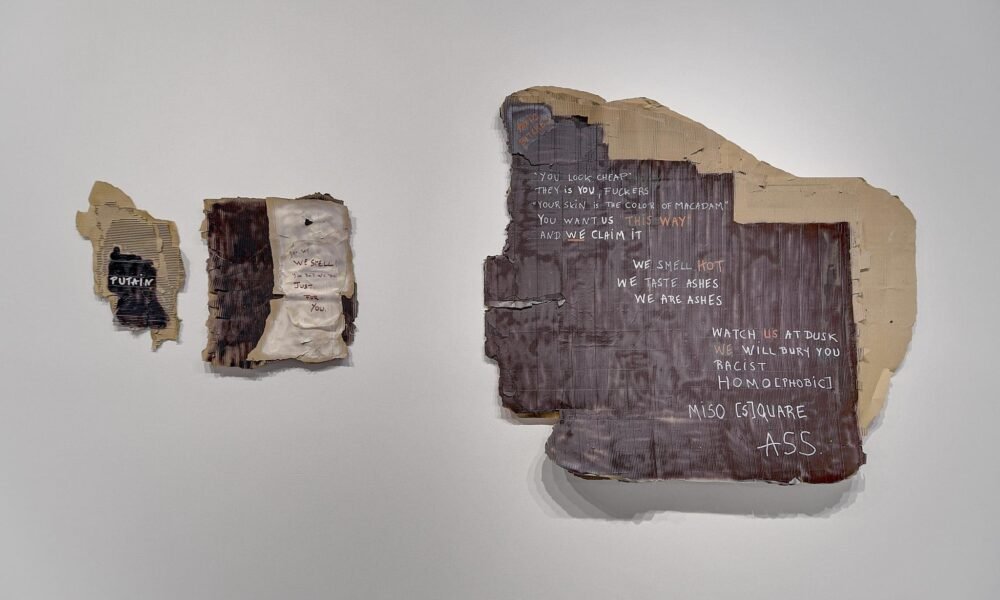 PUTAIN
WE SMELL!
JUST
FOR
YOU.
"YOU LOOK CHEAP"
THEY is YOU, FUCKERS
"YOUR SKIN is THE COLOR OF MACADAM"
YOU WANT US THIS WAY!
AND WE CLAIM iT
WE SMELL HOT
WE TASTE ASHES
WE ARE ASHES
WATCH US AT DUSK
WE WILL BURY YOU
RACIST
HOMO[PHOBiC]
MiSO [S]QUARE
ASS.